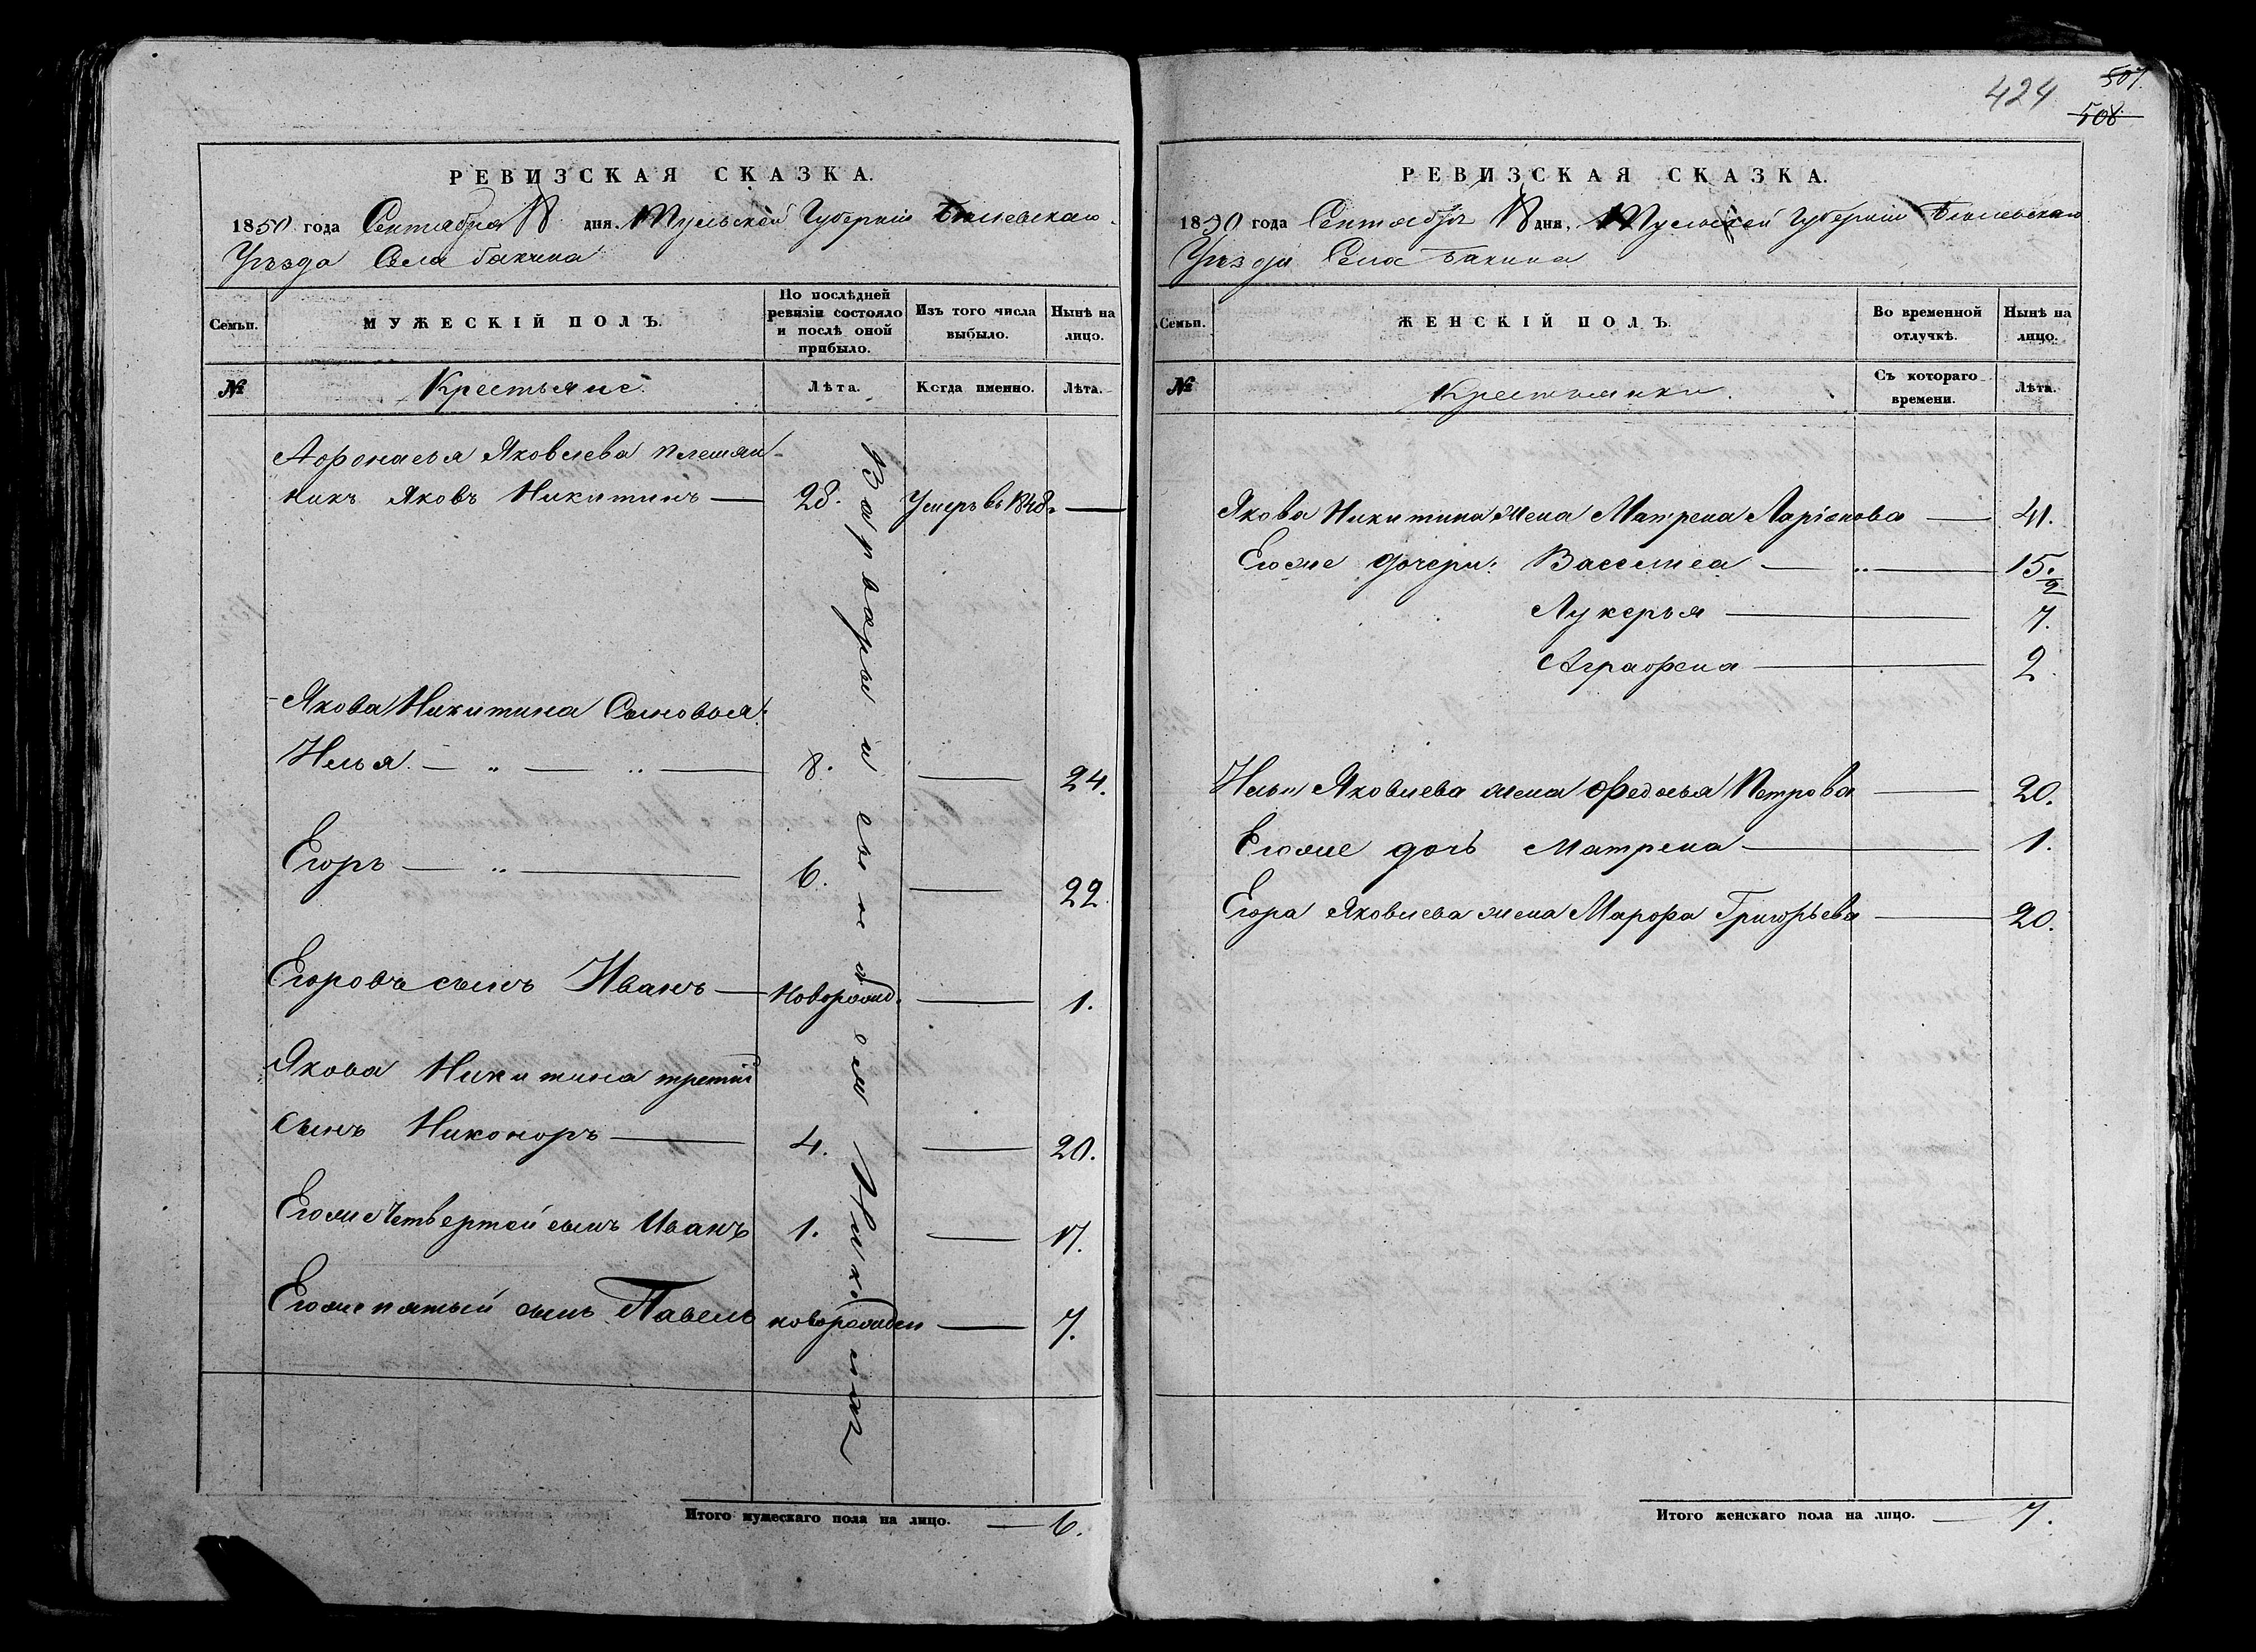 РЕВИЗСКАЯ СКАЗКА.
1850 года Сентября 18 дня. Тульской Губерніи Бѣлевскаго
Уѣзда Села Бакина
Семьи. МУЖЕСКІЙ ПОЛЪ. По послѣдней ревизіи состояло и послѣ оной прибыло. Изъ того числа выбыло. Нынѣ на лицо.
№ Крестьяне. Лѣта. Когда именно. Лѣта.
Афонасья Яковлева племян-
никъ Яковъ Никитинъ — 28. Умеръ въ 1848. —
Якова Никитина Сыновья:
Илья. — „ — „ — 8. — 24.
Егоръ — „ — 6. — 22.
Егоровъ сынъ Иванъ — новорожд. — 1.
Якова Никитина третій
сынъ Никоноръ — 4. — 20.
Егоже четвертой сынъ Иванъ 1. — 17.
Егоже пятый сынъ Павелъ новорожден — 7.
Итого мужескаго пола на лицо. — 6.
424
507.
508
РЕВИЗСКАЯ СКАЗКА.
1850 года Сентября 18 дня, Тульской Губерніи Бѣлевскаго
Уѣзда Села Бакина
Семьи. ЖЕНСКІЙ ПОЛЪ. Во временной отлучкѣ. Нынѣ на лицо.
№ Крестьянки. Съ котораго времени. Лѣта.
Якова Никитина жена Матрена Ларіонова — 41.
Егоже дочери: Васелиса — „ — 15.
Лукерья — 7.
Аграфена — 2.
Ильи Яковлева жена Федосья Петрова — 20.
Егоже дочь Матрена — 1.
Егора Яковлева жена Марфа Григорьева — 20.
Итого женскаго пола на лицо. — 7.